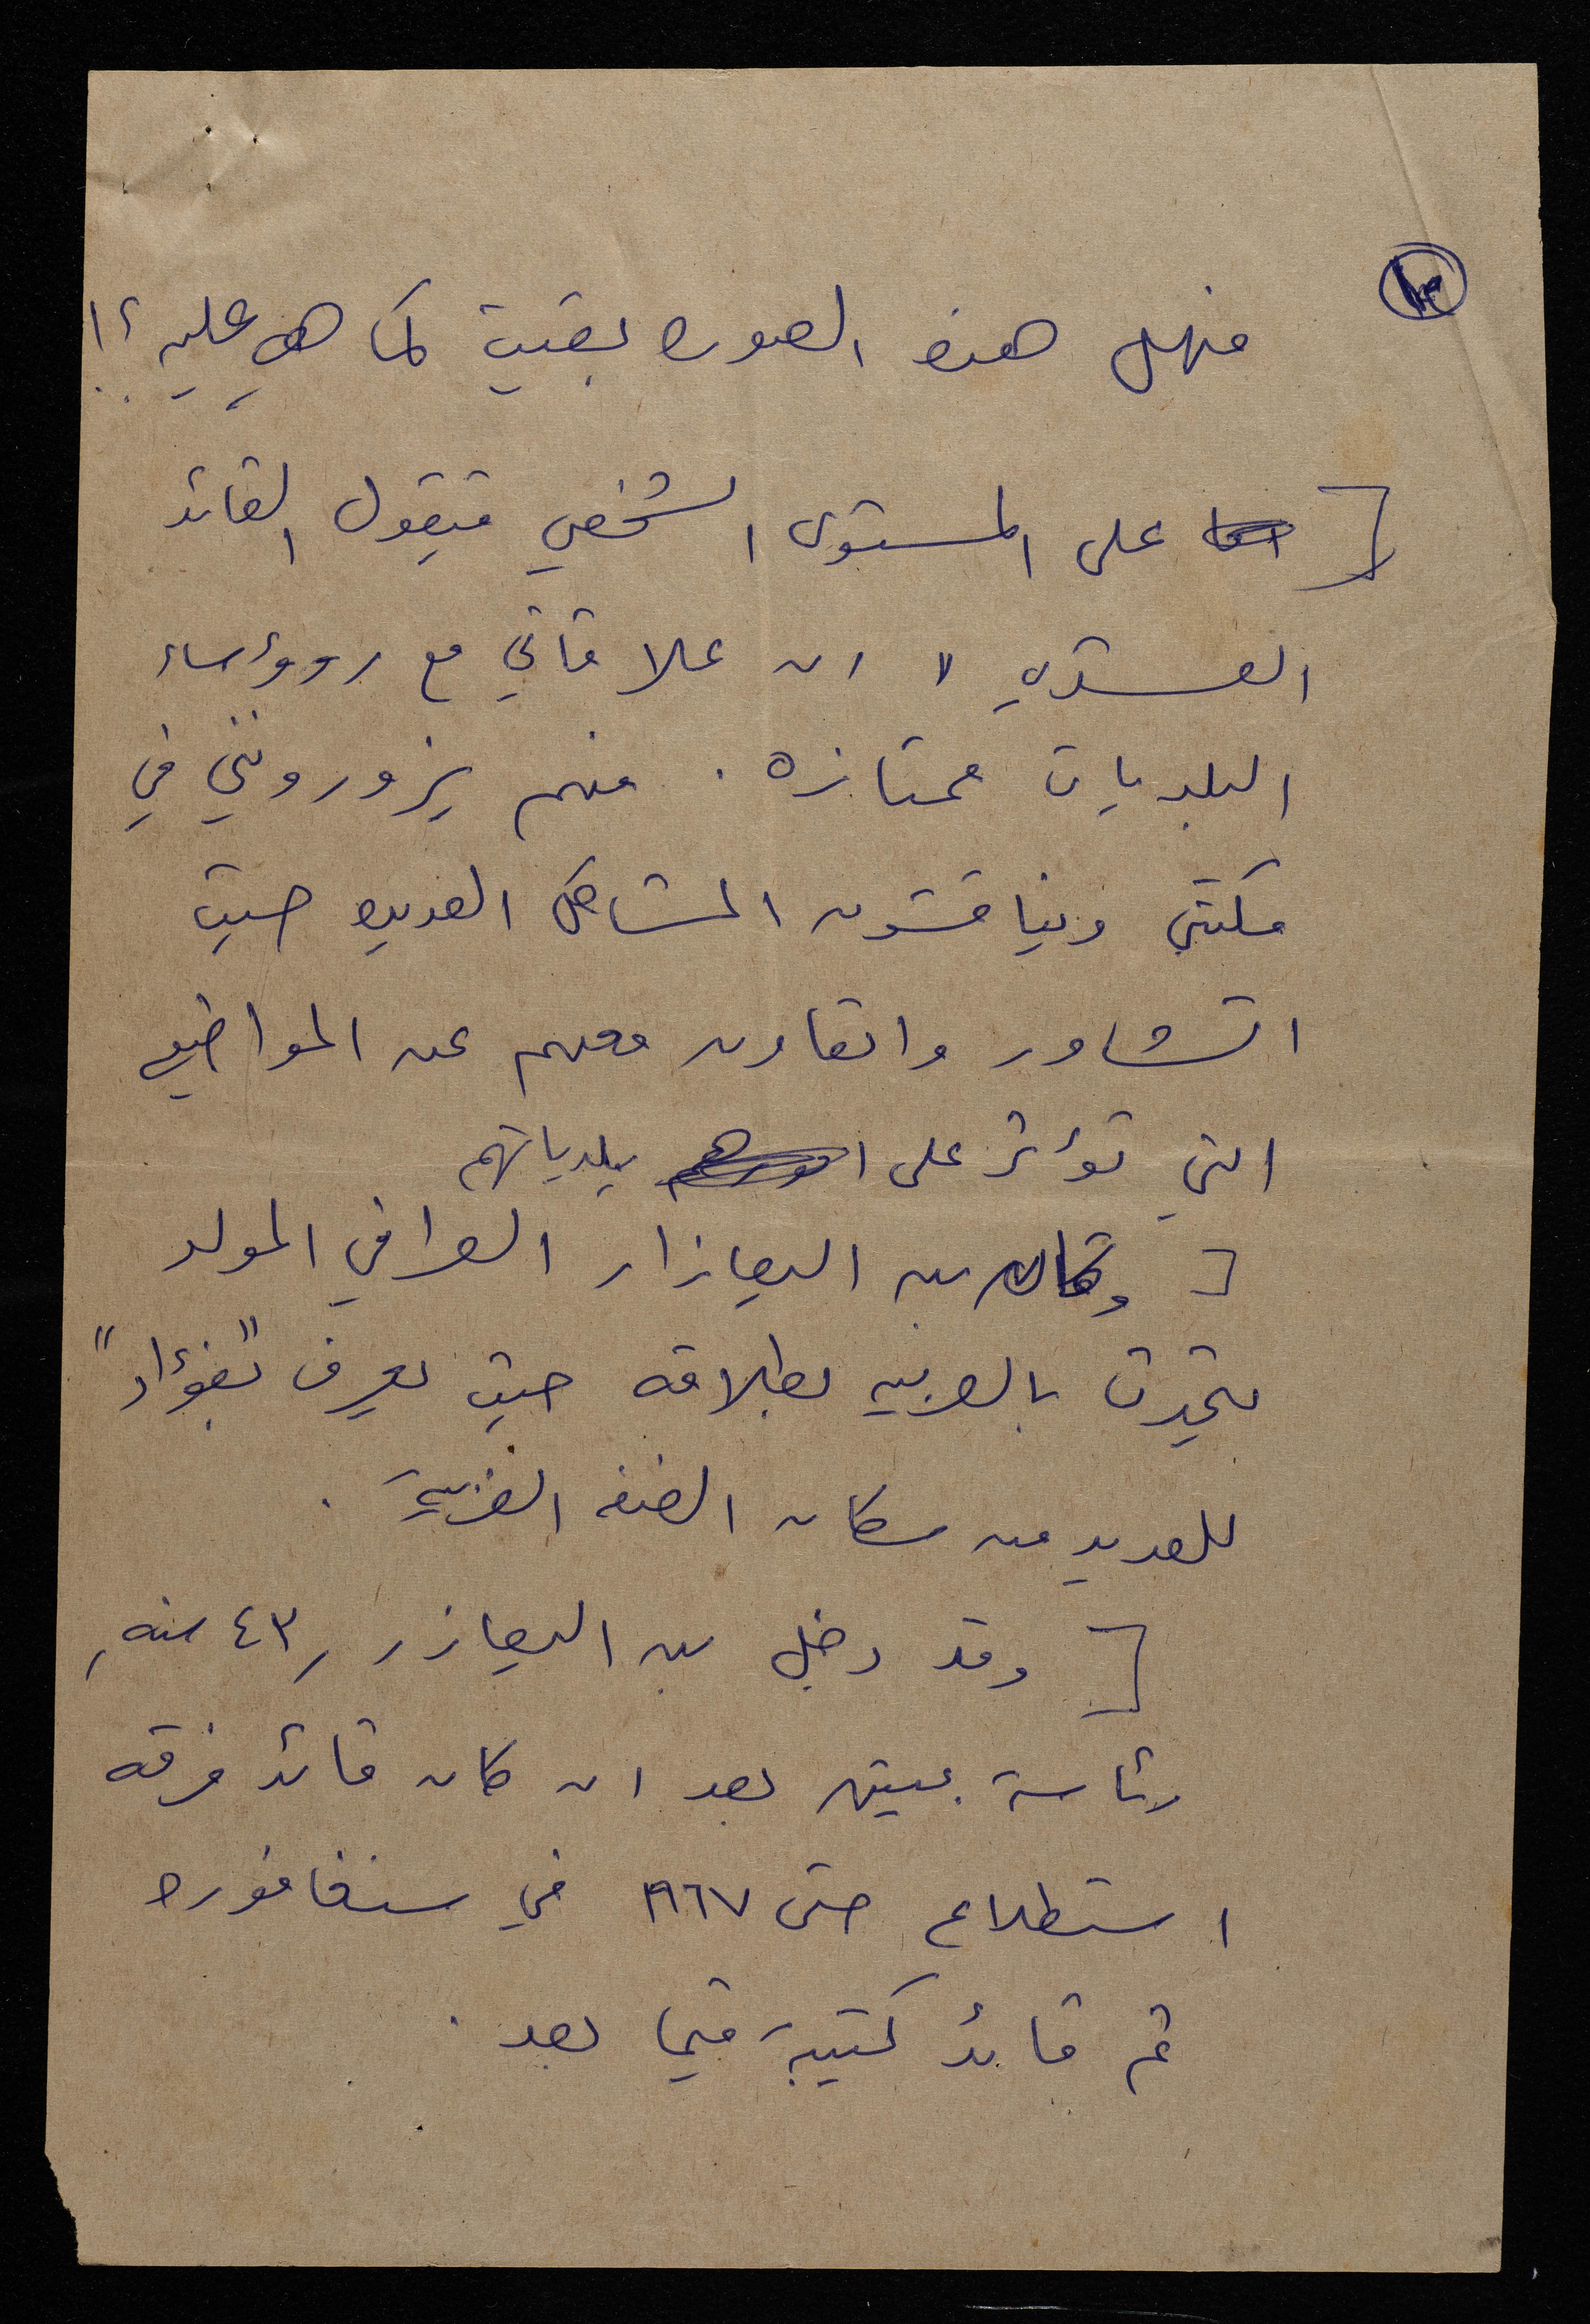 فهل هذه الصوره بقيت كما هي عليه ؟!
على المستوى الشخصي فيقول القائد
العسكري " ان علاقاتي مع رووءساء
البلديات ممتازه . فهم يزورونني في
مكتبي ويناقشون المشاكل العديده حيث
اتشاور واتعاون معهم عن المواضيع
التي تؤثر على بلدياتهم
وكان بن اليعازار العراقي المولد
يتحدث بالعربيه بطلاقه حيث يعرف "بفؤاد"
للعديد من سكان الضفه الغربية .
وقد دخل بن اليعازر ، ٤٣ سنه ،
رئاسة جيش بعد ان كان قائد فرقه
استطلاع حتى ١٩٦٧ في سنغافوره
ثم قائد كتيبة فيما بعد .